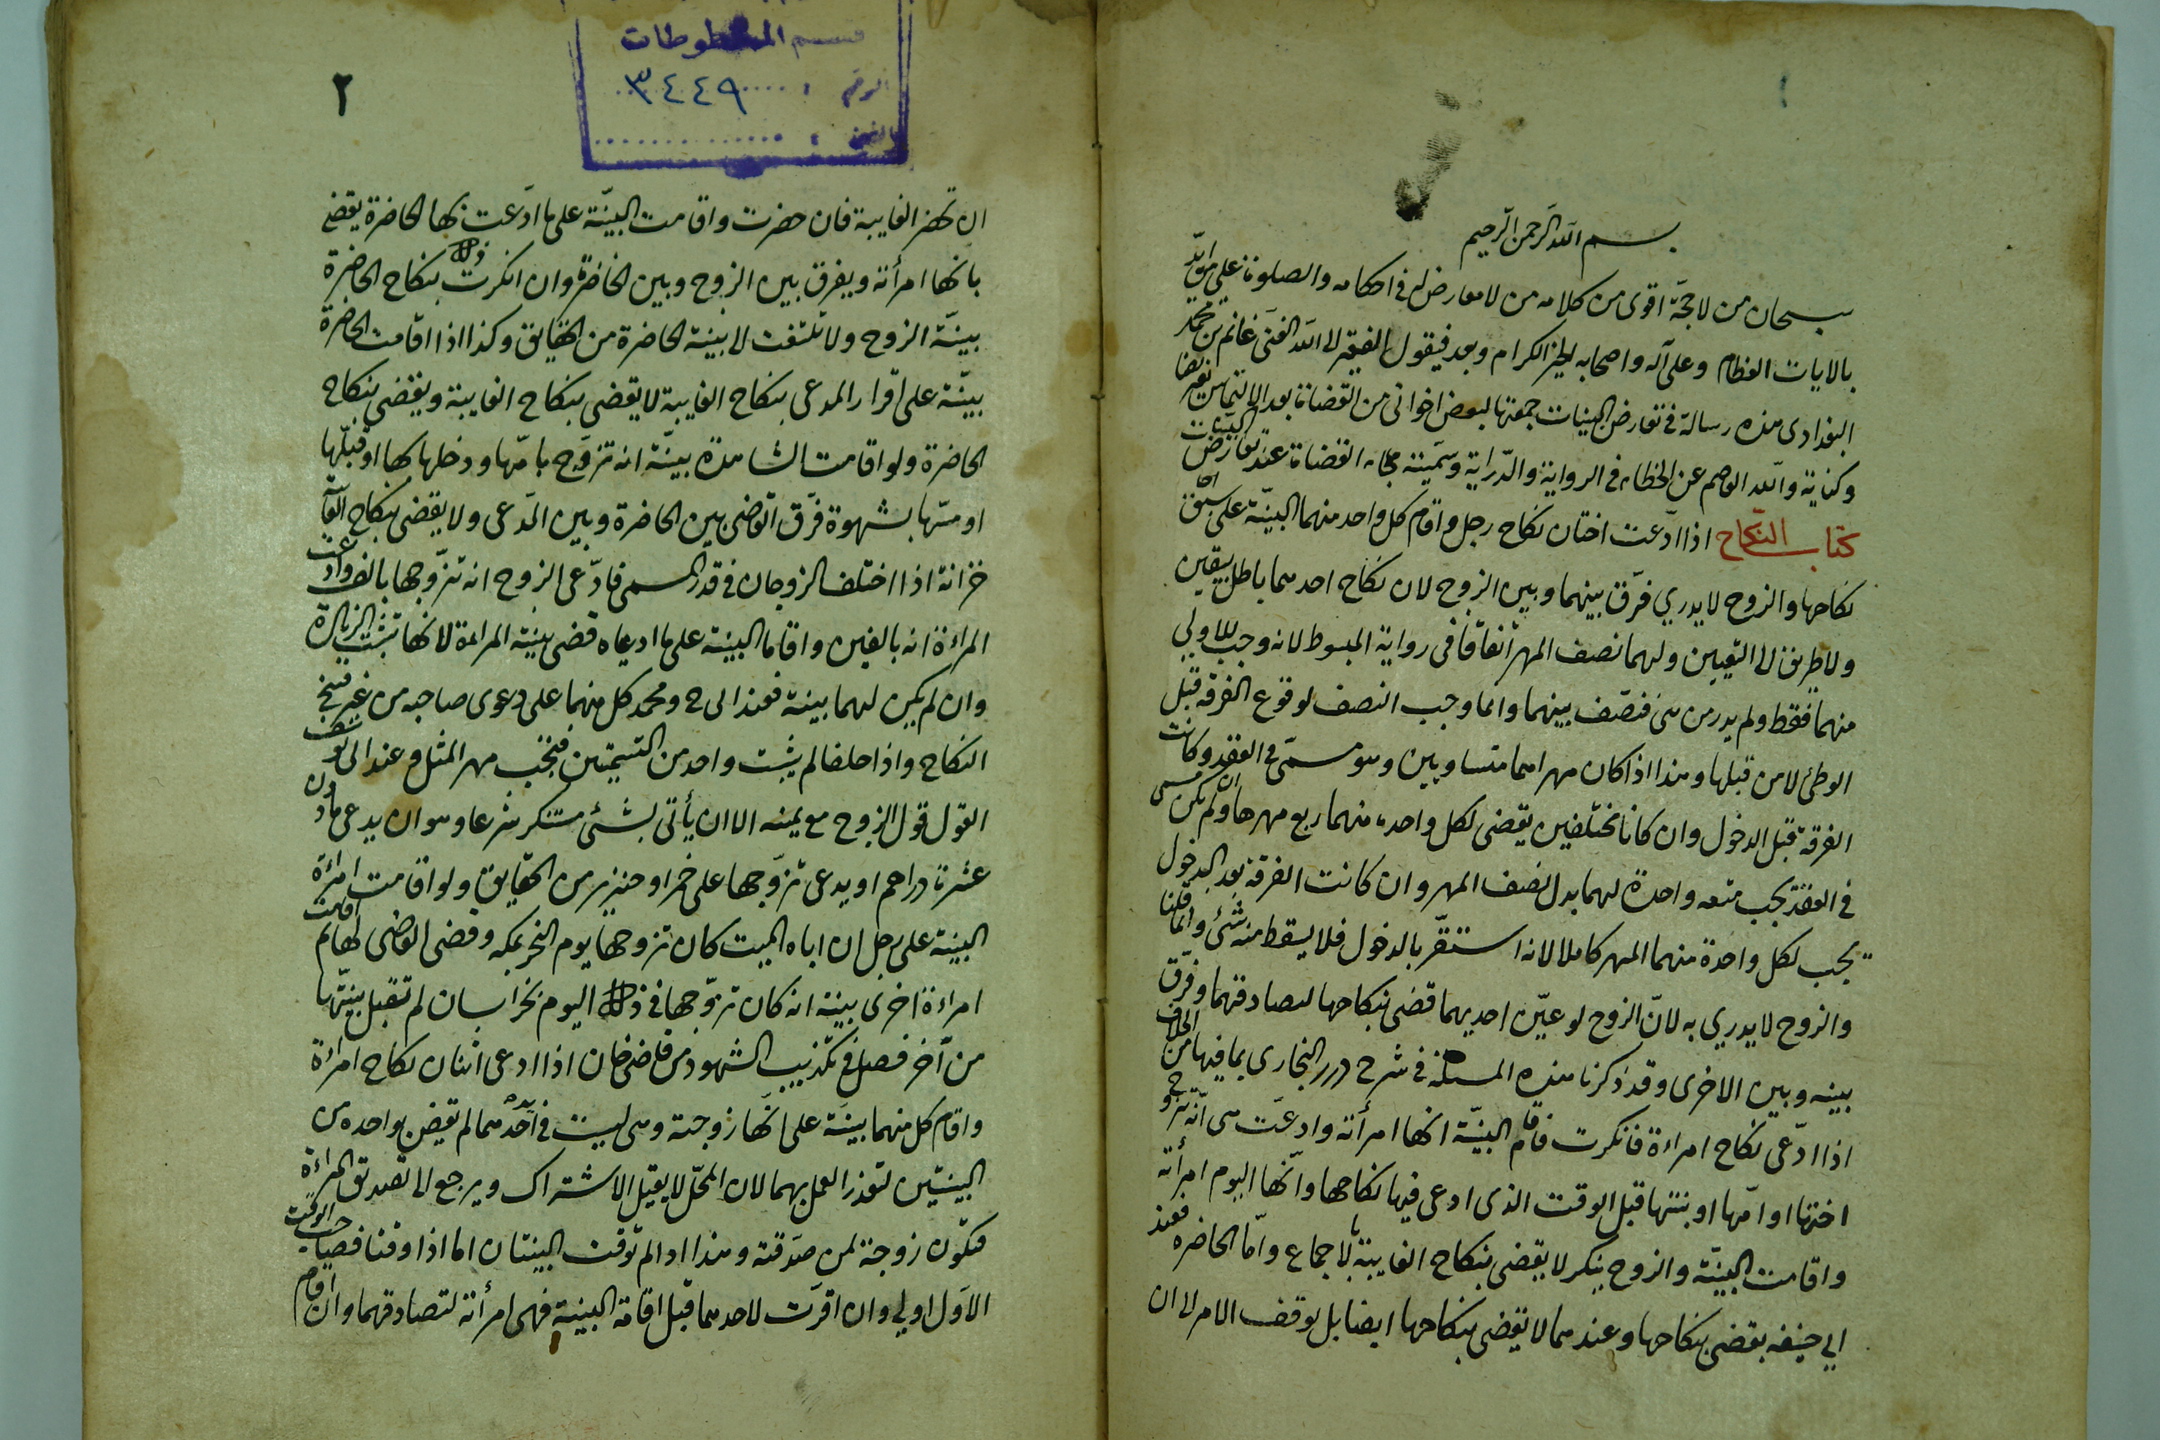 بسم الله الرحمن الرحيم
سبحان من لا حجة اقوى من كلامه من لا معارض له في احكامه والصلوة على من
بالايات العظام وعلى آله واصحابه الكرام وبعد فيقول الفقير الى الله الغنى غانم بن محمد
البغدادى هذه رسالة في تعارض البينات جمعتها لبعض اخوانى من القضاة بعد الالتماس
وكفاية والله العاصم عن الخطاء في الرواية والدراية وسميته ملجاء القضاة عند تعارض البينات
كتاب النكاح اذا ادعت اختان نكاح رجل واقام كل واحد منهما البينة على سبق
نكاحها والزوج لا يدري فرق بينهما وبين الزوج لان نكاح احدهما باطل بيقين
ولا طريق الى التعيين ولهما نصف المهر اتفاقا في رواية المبسوط لانه وجب للاولى
منهما فقط ولم يدر من هى فتنصف بينهما وانما وجب النصف لوقوع الفرقة قبل
الوطئ لا من قبلها وهذا اذا كان مهراهما متساويين وهو مسمى في العقد وكانت
الفرقة قبل الدخول وان كانا مختلفين يقضى لكل واحدة منهما ربع مهرها وان لم يكن مسمى
في العقد يجب متعه واحدة لهما بدل نصف المهر وان كانت الفرقة بعد الدخول
يجب لكل واحدة منهما المهر كاملا لانه استقر بالدخول فلا يسقط منه شئ وانما قلنا
والزوج لا يدري به لان الزوج لو عين احديهما قضى بنكاحها لتصادقهما وفرق
بينه وبين الاخرى وقد ذكرنا هذه المسئلة في شرح درر البحار بما فيها من الخلاف
اذا ادعى نكاح امراءة فانكرت فاقام البينة انها امرأته وادعت هى انه تزوج
اختها او امها او بنتها قبل الوقت الذى ادعى فيها نكاحها وانها اليوم امرأته
واقامت البينة والزوج ينكر لا يقضى بنكاح الغايبة بالاجماع واما الحاضره فعند
ابي حنيفه يقضى بنكاحها وعندهما لا يقضى بنكاحها ايضا بل يوقف الامر الى ان
قسم المخطوطات
الرقم : ٣٤٤٩
٢
ان تحضر الغايبة فان حضرت واقامت البينة على ما ادعت بها الحاضرة يقضى
بانها امرأته ويفرق بين الزوج وبين الحاضرة وان انكرت ذلك بنكاح الحاضرة
ببينة الزوج ولا تلتفت لا بينة الحاضرة من الحقايق وكذا اذا اقامت الحاضرة
بينة على اقرار المدعى بنكاح الغايبة لا يقضى بنكاح الغايبة ويقضى بنكاح
الحاضرة ولو اقامت الشاهدة بينة انه تزوج بامها ودخل بها او قبلها
او مسها بشهوة فرق القاضى بين الحاضرة وبين المدعى ولا يقضى بنكاح الغايبة
خزانة اذا اختلف الزوجان في قدر المسمى فادعى الزوج انه تزوجها بالف وادعت
المراءة انه بالفين واقاما البينة على ما ادعياه قضى ببينة المراءة لانها تثبت الزيادة
وان لم يكن لهما بينة فعند ابى ح ومحمد كل منهما على دعوى صاحبه من غير فسخ
النكاح واذا حلفا لم يثبت واحد من التسميتين فيجب مهر المثل وعند ابى يوسف
القول قول الزوج مع يمينه الا ان يأتى بشئ مستنكر شرعا وهو ان يدعى ما دون
عشرة دراهم او يدعى تزوجها على خمر او خنزير من الحقايق ولو اقامت امراءة
البينة على رجل ان اباه الميت كان تزوجها يوم النحر بمكه وقضى القاضى لها ثم اقامت
امراءة اخرى بينة انه كان تزوجها في ذلك اليوم بخراسان لم تقبل بينتها
من آخر فصل في تكذيب الشهود من قاضى خان اذا ادعى اثنان نكاح امراءة
واقام كل منهما بينة على انها زوجته وهى ليست في يد احدهما لم يقض بواحده من
البينتين لتعذر العمل بهما لان المحل لا يقبل الاشتراك ويرجع الى تصديق المراءة
فتكون زوجة لمن صدقته وهذا اذا لم توقت البينتان اما اذا وقتا فصاحب الوقت
الاول اولى وان اقرت لاحدهما قبل اقامة البينة فهى امرأته لتصادقهما وان اقام